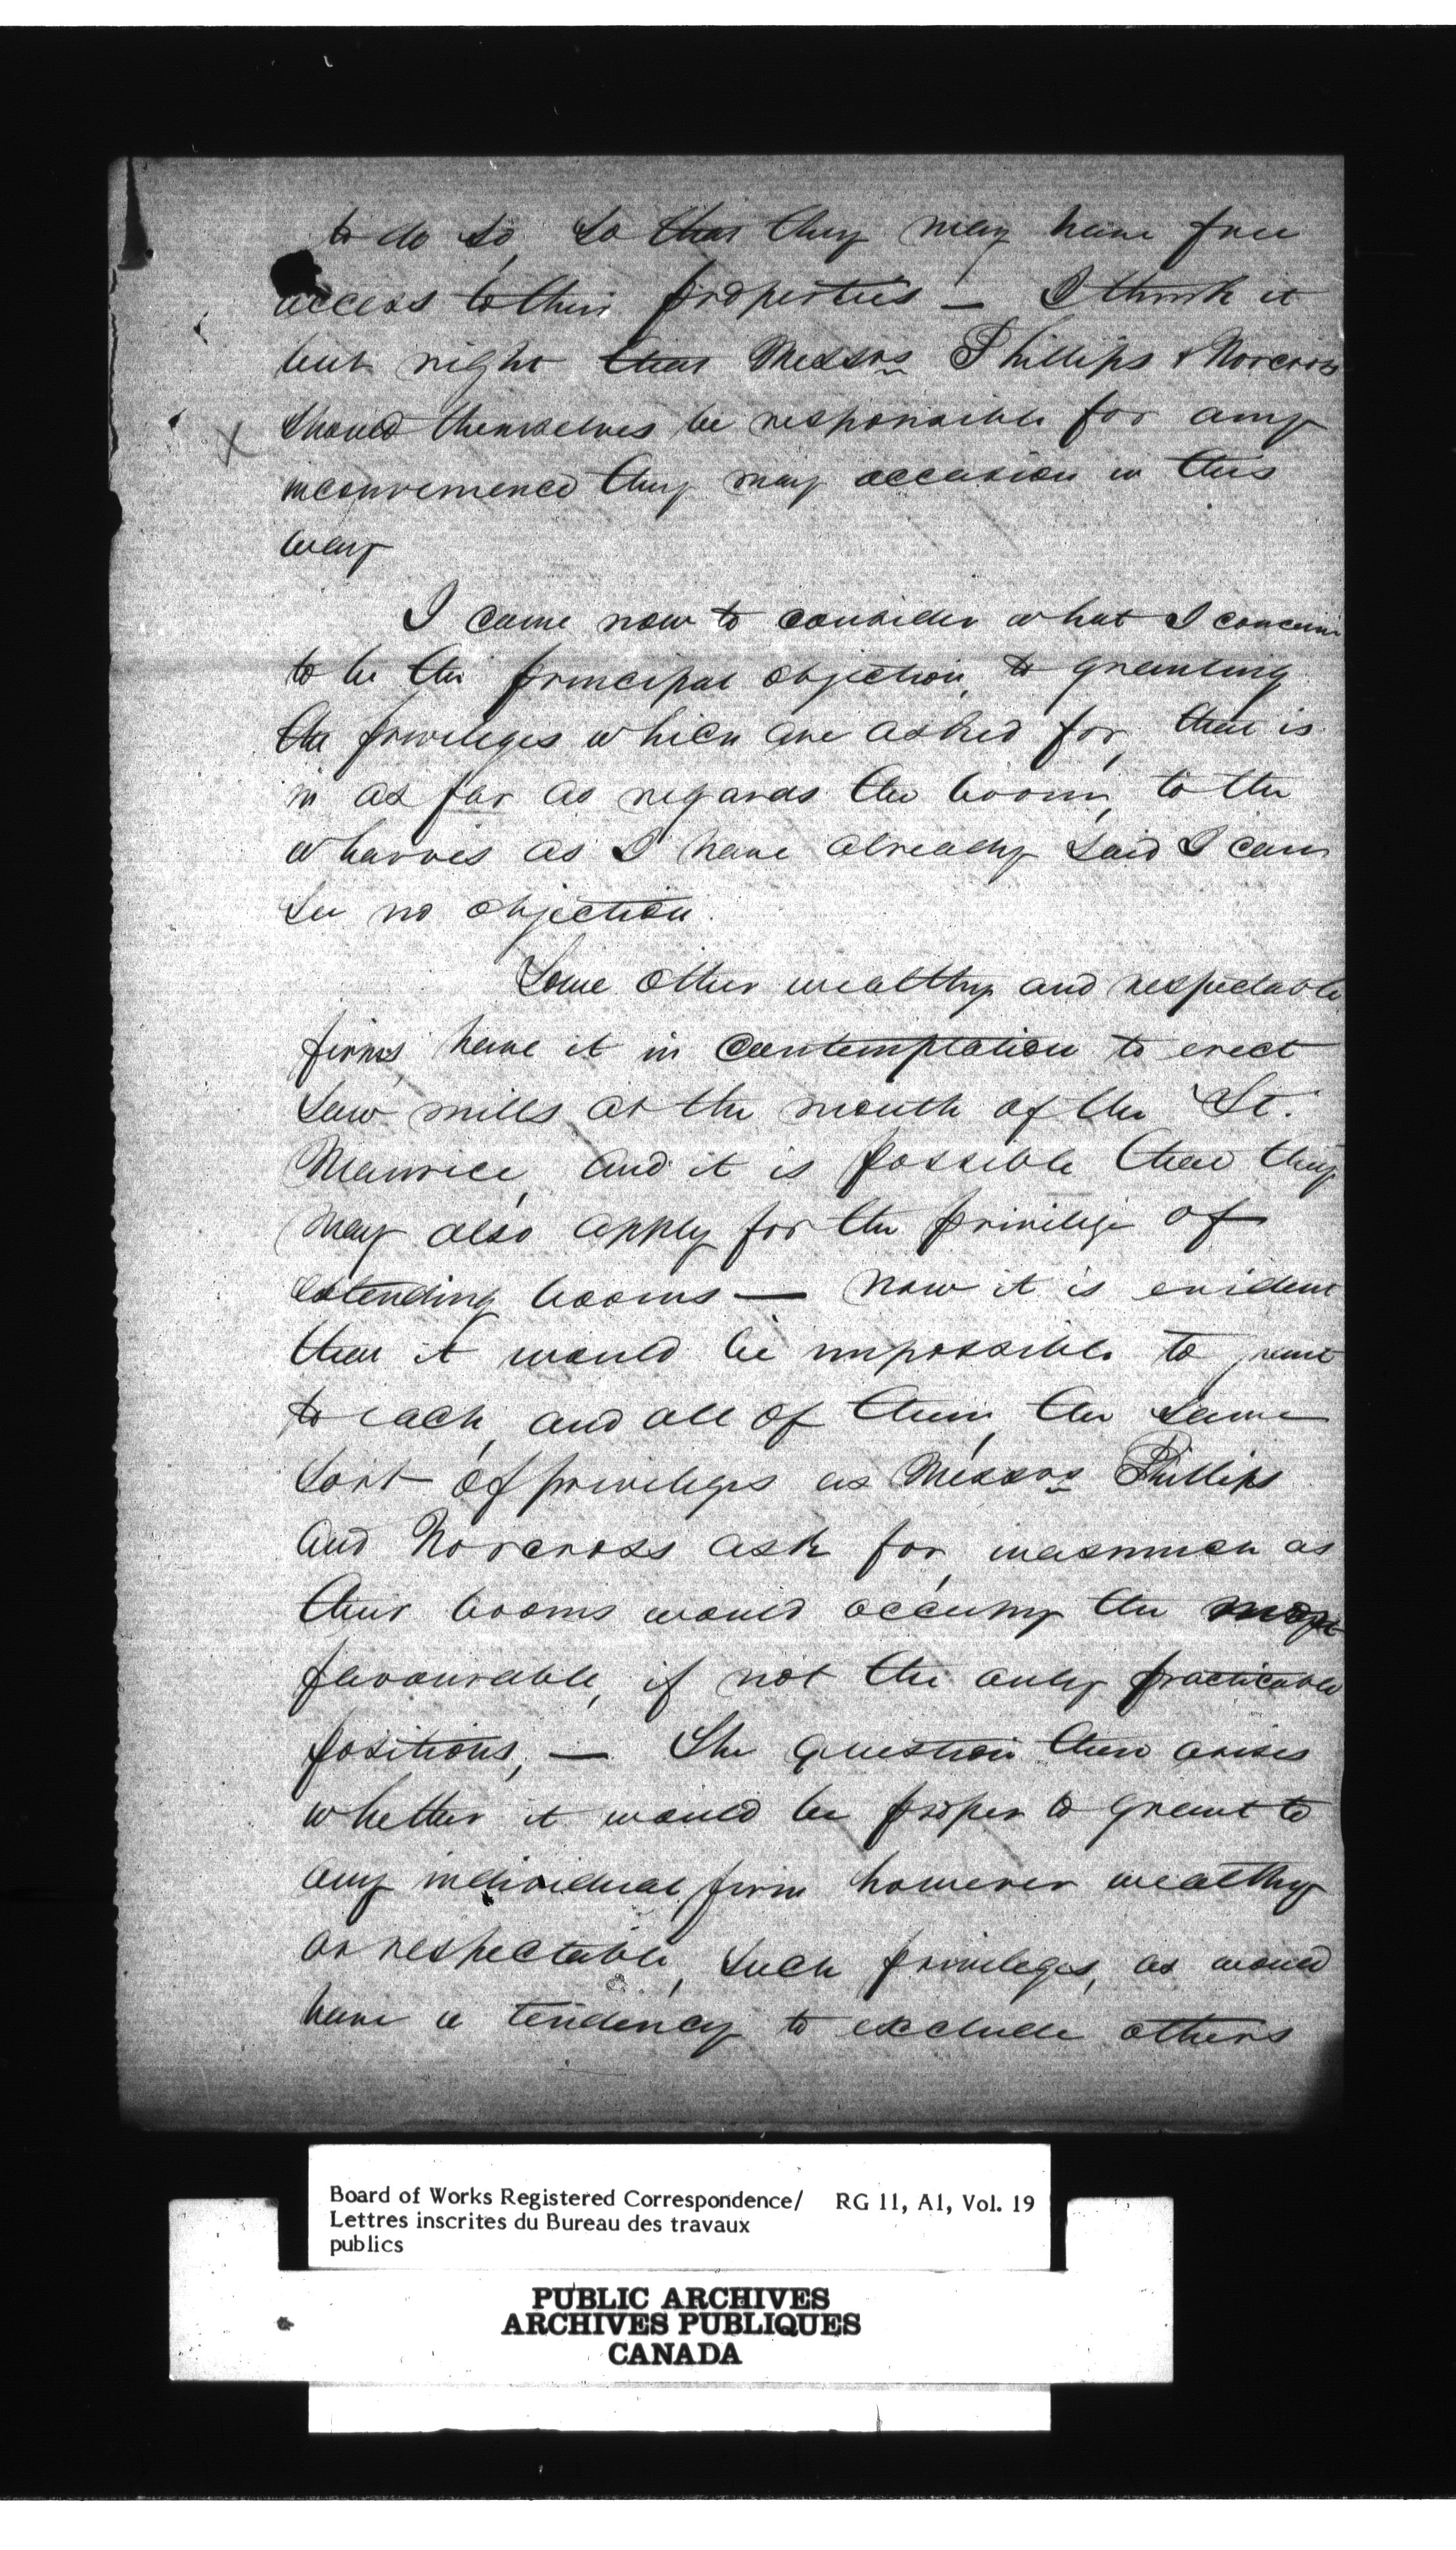 to do so, so that they may have free
access to their properties — I think it
but right that Messrs Phillips & Norcross
should themselves be responsible for any
X
inconvenience they may occasion in this
way
I come now to consider what I conceive
to be the principal objection, to granting
the privileges which are asked for, that is
in as far as regards the booms, to the
wharves as I have already said I can
see no objection.
Some other wealthy and respectable
firms, have it in contemplation to erect
saw mills at the mouth of the St.
Maurice, and it is possible that they
may also apply for the privilege of
extending booms — now it is evident
that it would be impossible to grant
to each, and all of them, the same
sort of privileges as Messrs Phillips
and Norcross ask for, inasmuch as
their booms would occupy the most
favourable, if not the only practicable
positions, — The question then arises
whether it would be proper to grant to
any individual firm however wealthy
or respectable, such privileges, as would
have a tendency to exclude others
Board of Works Registered Correspondence/ RG 11, A1, Vol. 19
Lettres inscrites du Bureau des travaux
publics
PUBLIC ARCHIVES
ARCHIVES PUBLIQUES
CANADA